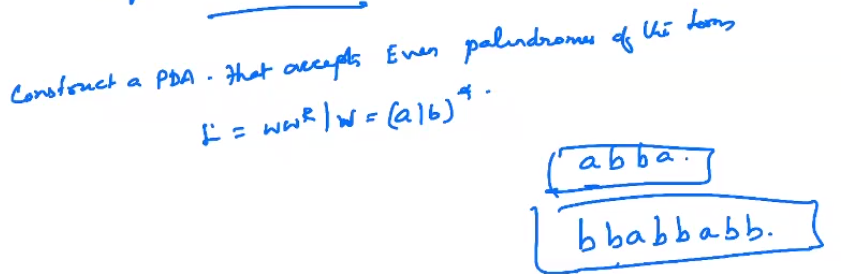 Construct a PDA. that accepts Even palindromes of the form
L = ww^R | w = (a|b)^*.
abba.
bbabbabb.